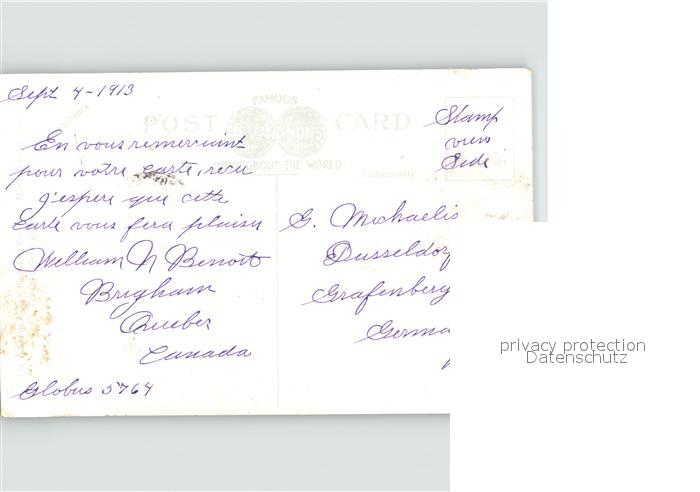 Sept 4-1913
FAMOUS
POST CARD
SONS
THROUGHOUT THE WORLD.
Address only
Stamp
view
Side
En vous remerciant
pour votre carte, recu
j'espere que cette
carte vous fera plaisir
William N Benoit
Brigham
Quebec
Canada
Globus 5764
G. Michaelis
Dusseldor
Grafenberg
Germa
privacy protection
Datenschutz